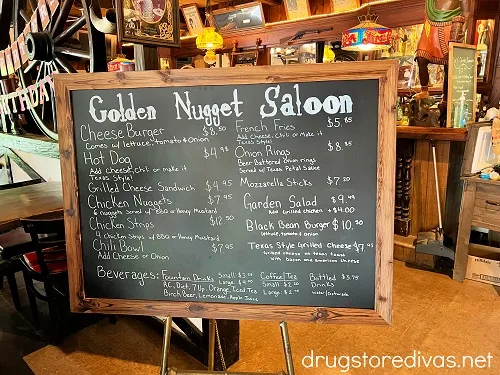 Golden Nugget Saloon
Cheese Burger $8.50
Comes w/ lettuce, tomato & Onion
Hot Dog $4.95
Add Cheese, Chili or make it
Texas Style!
Grilled Cheese Sandwich $4.95
Chicken Nuggets $7.95
6 Nuggets served w/ BBQ or Honey Mustard
Chicken Strips $12.50
4 Chicken Strips w/ BBQ or Honey Mustard
Chili Bowl $7.95
Add Cheese or Onion
French Fries $5.85
Add Cheese, Chili or Make it
Texas Style!
Onion Rings $8.85
Beer Battered Onion rings
Served w/ Texas Petal Sauce
Mozzarella Sticks $7.20
Garden Salad
Add Grilled Chicken +$4.00
Black Bean Burger $10.50
lettuce, tomato & onion
Texas Style Grilled Cheese $7.95
Grilled cheese on texas toast
with bacon and american cheese
Beverages:
Fountain Drinks Small
R.C., Diet, 7up, Orange, Iced Tea Large
Birch Beer, Lemonade, Apple Juice
Coffee/Tea
Small
Large
Bottled $3.75
Drinks
drugstoredivas.net